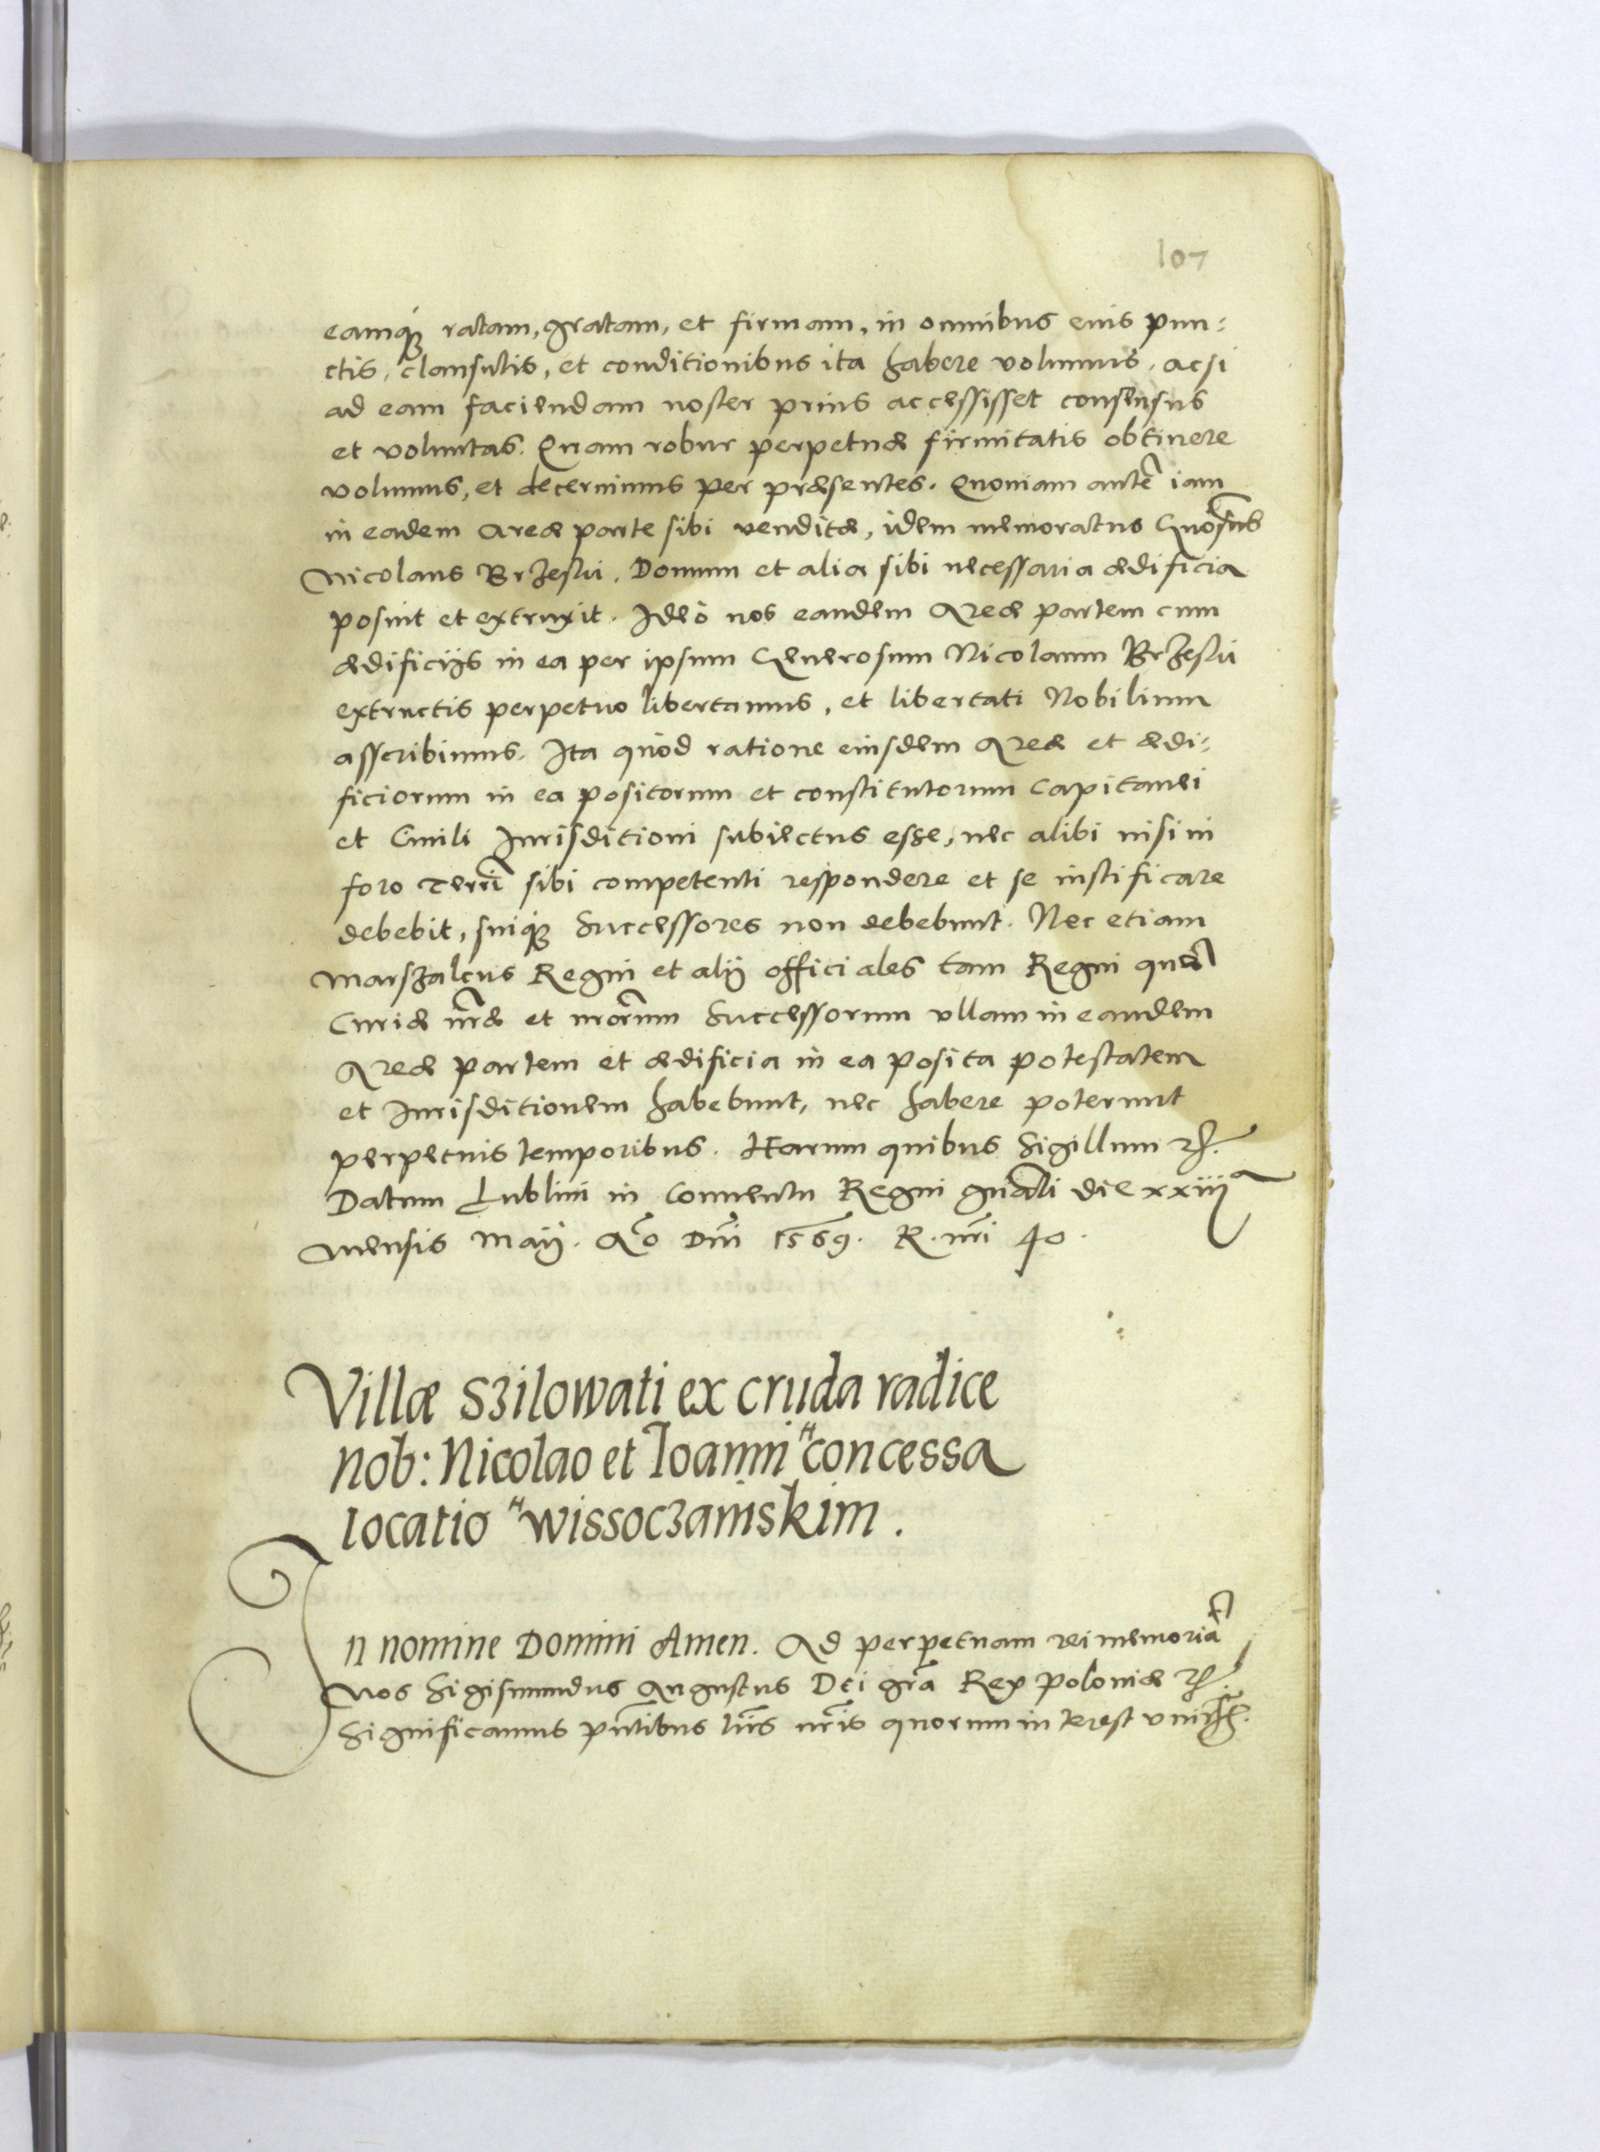 107
eamq́ ratam, gratam, et firmam, in omnibus euis pun:
ctis, clausulis, et conditionibus ita habere volumus, acsi
ad eam faciendam noster prius accessisset consensus
et voluntas. Quam robur perpetuæ firmitatis obtinere
volumus, et decernimus per præsentes. Quoniam autẽ iam
in eadem Areæ parte sibi venditæ, idem memoratus Gnõsus
Nicolaus Brzeski, Domum et alia sibi necessaria ædificia
posuit et extruxit. Ideò nos eandem Areæ partem cum
ædificijs in ea per ipsum Generosum Nicolaum Brzeski
extructis perpetuo libertamus, et libertati Nobilium
asscribimus. Ita quòd ratione eiusdem Areæ et ædi:
ficiorum in ea positorum et constitutorum Capitanei
et Ciuili Jurisditioni subiectus esse, nec alibi nisi in
foro Terrĩ sibi competenti respondere et se iustificare
debebit, suiq́ Successores non debebunt. Nec etiam
Marszalcus Regni et alij officiales tam Regni quã
Curiæ nr̃æ et nrõrum Successorum vllam in eandem
Areæ partem et ædificia in ea posita potestatem
et Jurisditionem habebunt, nec habere poterunt
perpetuis temporibus. Harum quibus Sigillum etc.
Datum Lublini in Conuentu Regni gnãli die xxiij
mensis Maij. Aõ Dnĩ 1569. R. nrĩ 40.
Villæ Szilowati ex cruda radice
nob: Nicolao et Ioanni " concessa
locatio " wissoczaniskim.
In nomine Domini Amen. Ad perpetuam rei memoriã
Nos Sigismundus Augustus Dei grã Rex Poloniæ etc.
Significamus pñtibus lrĩs nrĩs quorum interest vniũ